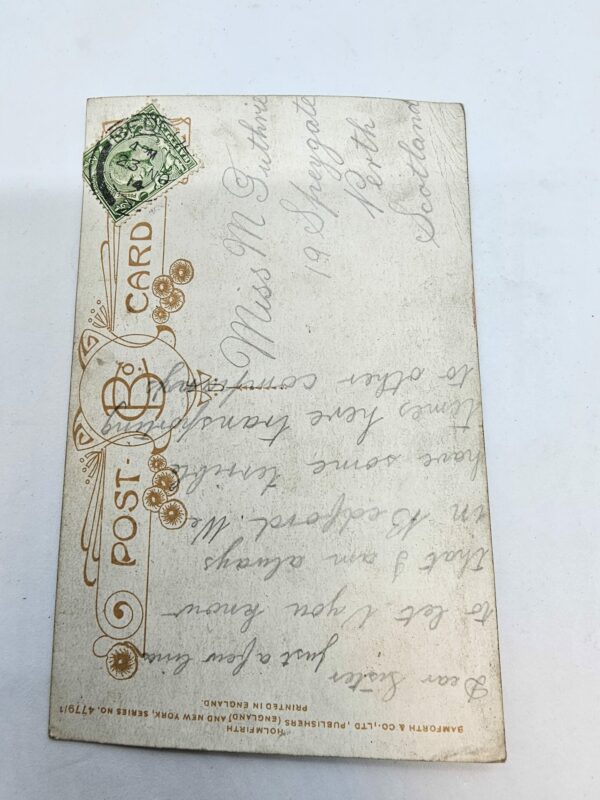 POST-CARD
B & Co.
BEDFORD
Dear Sister
Just a few lines
to let you know
that I am always
in Bedford. We
have some terrible
times here transporting
to other companys
Miss M Guthrie
19 Speygate
Perth
Scotland
HOLMFIRTH
BAMFORTH & CO., LTD., PUBLISHERS (ENGLAND) AND NEW YORK, SERIES NO. 4779/1
PRINTED IN ENGLAND.